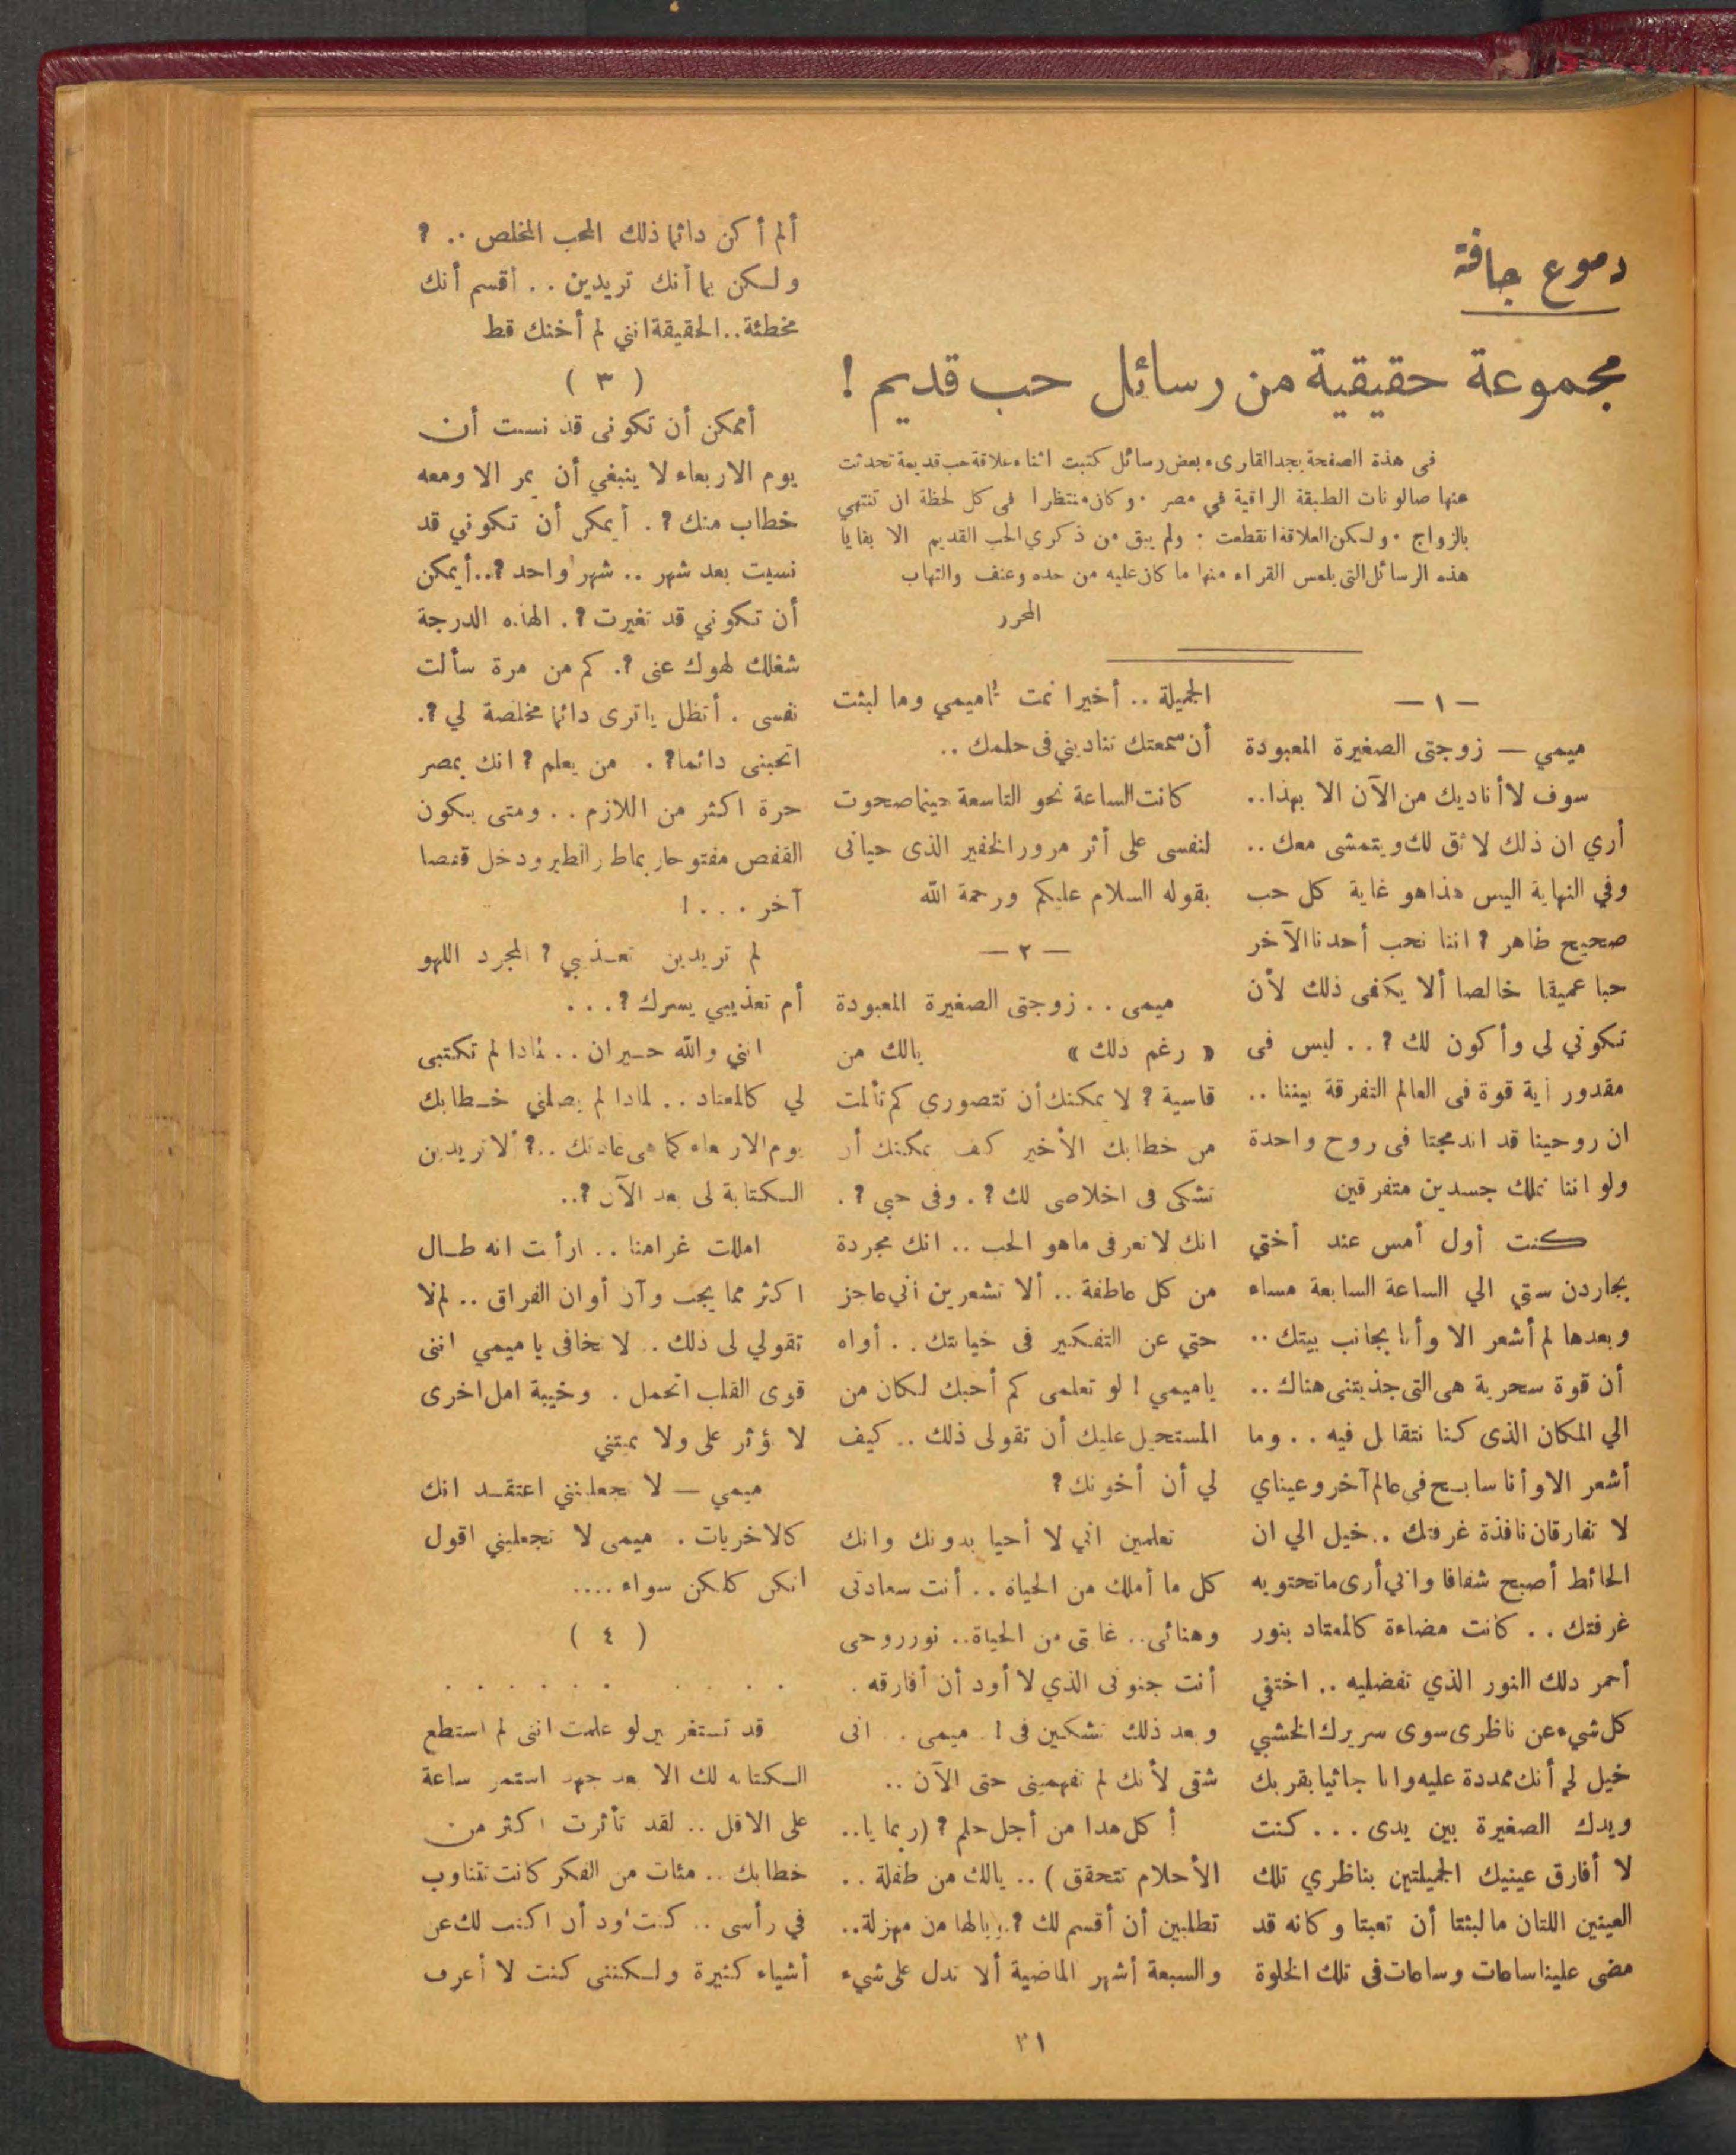 دموع جافة
مجموعة حقيقية من رسائل حب قديم !
فى هذه الصفحة يجد القارىء بعض رسائل كتبت اثناء علاقة حب قديمة تحدثت
عنها صالونات الطبقة الراقية في مصر . وكان منتظرا فى كل لحظة ان تنتهي
بالزواج . ولكن العلاقة انقطعت . ولم يبق من ذكري الحب القديم الا بقايا
هذه الرسائل التى يلمس القراء منها ما كان عليه من حده وعنف والتهاب
المحرر
— ١ —
ميمي — زوجتى الصغيرة المعبودة
سوف لا أناديك من الآن الا بهذا..
أري ان ذلك لائق لك ويتمشى معك ..
وفي النهاية اليس هذا هو غاية كل حب
صحيح طاهر ؟ اننا نحب أحدنا الآخر
حبا عميقا خالصا ألا يكفى ذلك لأن
تكوني لى وأكون لك ؟ . . ليس فى
مقدور أية قوة فى العالم التفرقة بيننا ..
ان روحينا قد اندمجتا فى روح واحدة
ولو اننا نملك جسدين متفرقين
كنت أول أمس عند أختي
بجاردن ستي الي الساعة السابعة مساء
وبعدها لم أشعر الا وأنا بجانب بيتك ..
أن قوة سحرية هى التى جذبتنى هناك ..
الي المكان الذى كنا نتقابل فيه . . وما
أشعر الا وأنا سابح فى عالم آخر وعيناي
لا تفارقان نافذة غرفتك . . خيل الي ان
الحائط أصبح شفافا واني أرى ما تحتويه
غرفتك . . كانت مضاءة كالمعتاد بنور
أحمر دلك النور الذي تفضليه .. اختفي
كل شيء عن ناظرى سوى سريرك الخشبي
خيل لي أنك ممددة عليه وانا جاثيا بقربك
ويدك الصغيرة بين يدى . . . كنت
لا أفارق عينيك الجميلتين بناظري تلك
العينين اللتان ما لبثتا أن تعبتا وكانه قد
مضى علينا ساعات وساعات فى تلك الخلوة
الجميلة .. أخيرا نمت ثاميمي وما لبثت
أن سمعتك تناديني فى حلمك ..
كانت الساعة نحو التاسعة حينما صحوت
لنفسى على أثر مرور الخفير الذى حيانى
بقوله السلام عليكم ورحمة الله
— ٢ —
ميمى . . زوجتى الصغيرة المعبودة
« رغم دلك » يالك من
قاسية ؟ لا يمكنك أن تتصوري كم تألمت
من خطابك الأخير كيف يمكنك أن
تشكى فى اخلاصى لك ؟ . وفى حبى ؟ .
انك لا تعرفى ما هو الحب .. انك مجردة
من كل عاطفة .. ألا تشعرين أني عاجز
حتي عن التفكير فى خيانتك . . أواه
ياميمي ! لو تعلمى كم أحبك لكان من
المستحيل عليك أن تقولى ذلك .. كيف
لي أن أخونك ؟
تعلمين اني لا أحيا بدونك وانك
كل ما أملك من الحياة . . أنت سعادتى
وهنائى .. غايتى من الحياة.. نور روحى
أنت جنونى الذي لا أود أن أفارقه .
وبعد ذلك تشكين فى ! . ميمى . . انى
شقى لأنك لم تفهمينى حتى الآن ..
أ كل هدا من أجل حلم ؟ (ربما يا..
الأحلام تتحقق ) .. يالك من طفلة ..
تطلبين أن أقسم لك ؟ . يالها من مهزلة..
والسبعة أشهر الماضية ألا تدل على شيء
ألم أكن دائما ذلك المحب المخلص .. ؟
ولكن بما أنك تريدين . . أقسم أنك
مخطئة .. الحقيقة انني لم أخنك قط
( ٣ )
أيمكن أن تكونى قد نسيت أن
يوم الاربعاء لا ينبغي أن يمر الا ومعه
خطاب منك ؟ . أيمكن أن تكوني قد
نسيت بعد شهر .. شهر واحد ؟..أيمكن
أن تكوني قد تغيرت ؟ . الهذه الدرجة
شغلك لهوك عنى ؟. كم من مرة سألت
نفسى . أتظل ياترى دائما مخلصة لي ؟.
اتحبنى دائما؟ . من يعلم ؟ انك بمصر
حرة اكثر من اللازم . . ومتى يكون
القفص مفتوحا ربما طار الطير ودخل قفصا
آخر . . . !
لم تريدين تعذيبي ؟ المجرد اللهو
أم تعذيبي يسرك ؟ . . .
انني والله حيران . . لماذا لم تكتبى
لي كالمعتاد .. لمادا لم يصلني خطابك
يوم الاربعاء كما هى عادتك ..؟ ألا تريدين
الكتابة لى بعد الآن ؟..
امللت غرامنا .. ارأيت انه طال
اكثر مما يجب وآن أوان الفراق .. لم لا
تقولي لى ذلك .. لا تخافى يا ميمي اننى
قوى القلب اتحمل . وخيبة امل اخرى
لا تؤثر على ولا تميتني
ميمي — لا تجعلينني اعتقد انك
كالاخريات . ميمى لا تجعليني اقول
انكن كلكن سواء ....
( ٤ )
. . . . . . . . . .
قد تستغربين لو علمت اننى لم استطع
الكتابه لك الا بعد جهد استمر ساعة
على الاقل .. لقد تأثرت اكثر من
خطابك .. مئات من الفكر كانت تتناوب
في رأسى .. كنت أود أن اكتب لك عن
أشياء كثيرة ولكننى كنت لا أعرف
٣١